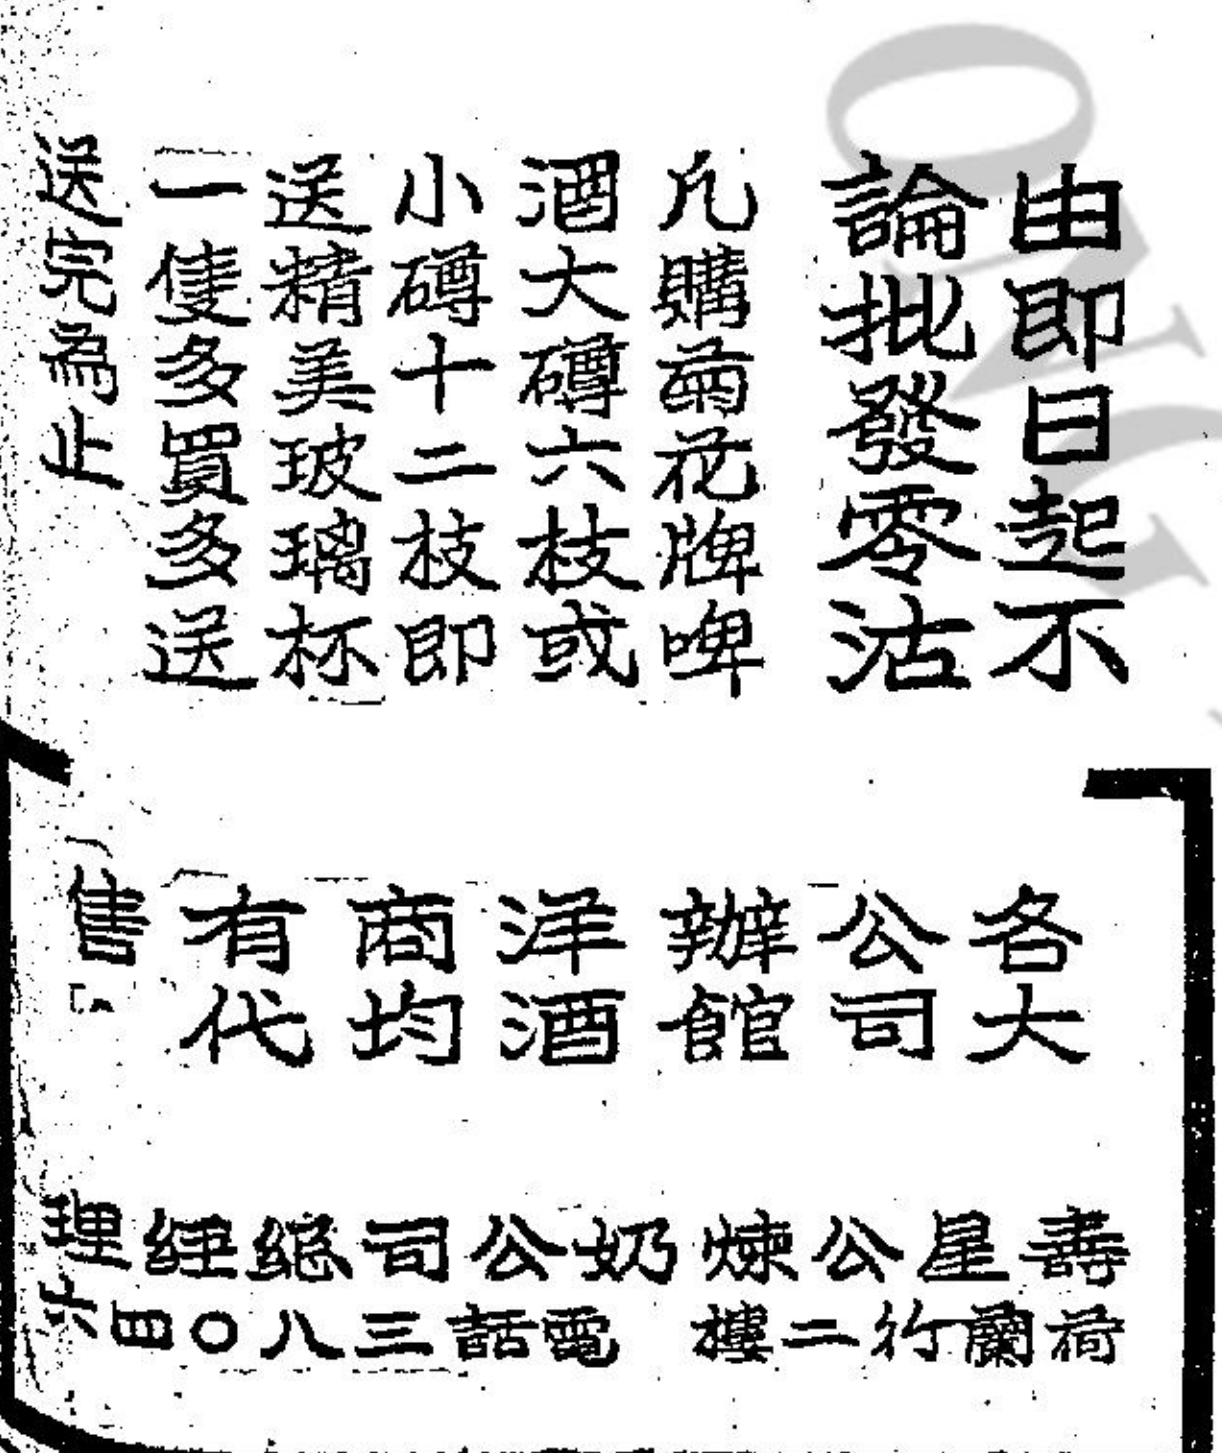 由即日起不
論批發零沽
凡購菊花牌啤
酒大罇六枝或
小罇十二枝即
送精美玻璃杯
一隻多買多送
送完為止
各大
公司
辦館
洋酒
商均
有代
售
壽星公煉奶公司總經理
荷蘭行二樓 電話三八〇四六